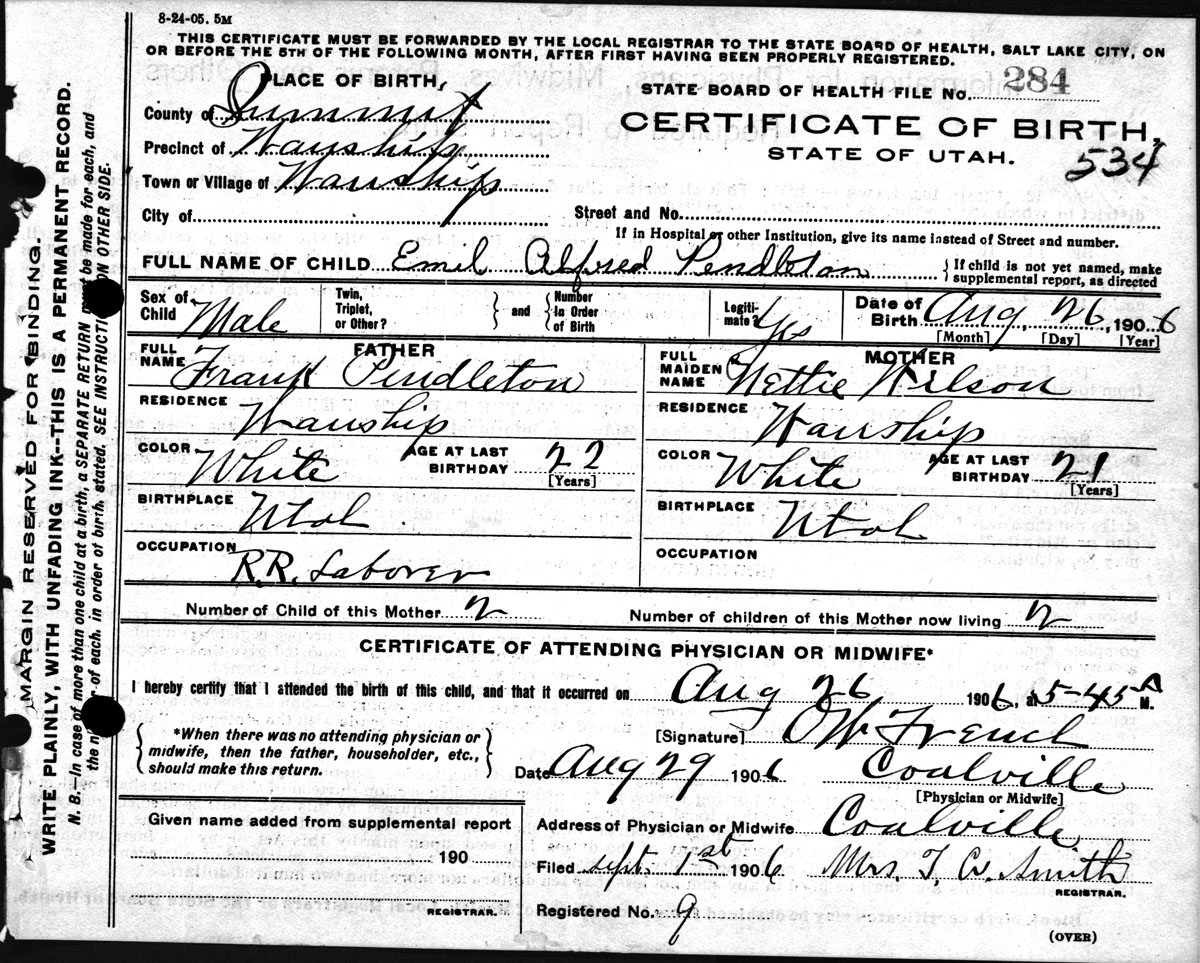 8-24-05. 5M
THIS CERTIFICATE MUST BE FORWARDED BY THE LOCAL REGISTRAR TO THE STATE BOARD OF HEALTH, SALT LAKE CITY, ON
OR BEFORE THE 5TH OF THE FOLLOWING MONTH, AFTER FIRST HAVING BEEN PROPERLY REGISTERED.
PLACE OF BIRTH,
STATE BOARD OF HEALTH FILE No. 284
County of Summit
CERTIFICATE OF BIRTH,
Precinct of Wanship
STATE OF UTAH.
534
Town or Village of Wanship
City of
Street and No.
If in Hospital or other Institution, give its name instead of Street and number.
FULL NAME OF CHILD Emil Alfred Pendleton
{ If child is not yet named, make
supplemental report, as directed
Sex of Child Male
Twin, Triplet, or Other? } and { Number In Order of Birth
Legiti- mate? Yes
Date of Birth Aug 26, 1906
[Month] [Day] [Year]
FATHER
FULL NAME Frank Pendleton
MOTHER
FULL MAIDEN NAME Nettie Wilson
RESIDENCE Wanship
RESIDENCE Wanship
COLOR White AGE AT LAST BIRTHDAY 22 [Years]
COLOR White AGE AT LAST BIRTHDAY 21 [Years]
BIRTHPLACE Utah
BIRTHPLACE Utah
OCCUPATION R.R. Laborer
OCCUPATION
Number of Child of this Mother 2
Number of children of this Mother now living 2
CERTIFICATE OF ATTENDING PHYSICIAN OR MIDWIFE*
I hereby certify that I attended the birth of this child, and that it occurred on Aug 26 1906, at 5-45 A M.
{ *When there was no attending physician or
midwife, then the father, householder, etc.,
should make this return. }
[Signature] French
Date Aug 29 1906 Coalville
[Physician or Midwife]
Given name added from supplemental report
190
REGISTRAR.
Address of Physician or Midwife Coalville
Filed Sept. 1st 1906 Mrs. T W Smith
REGISTRAR.
Registered No. 9
(OVER)
MARGIN RESERVED FOR BINDING.
WRITE PLAINLY, WITH UNFADING INK--THIS IS A PERMANENT RECORD.
N. B.—In case of more than one child at a birth, a SEPARATE RETURN must be made for each, and
the of each, in order of birth, stated. SEE INSTRUCTIONS ON OTHER SIDE.